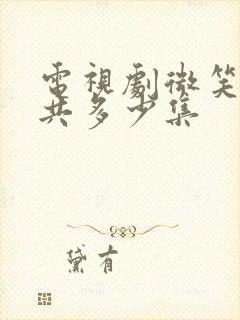 電視劇微笑
共多少集
黛有